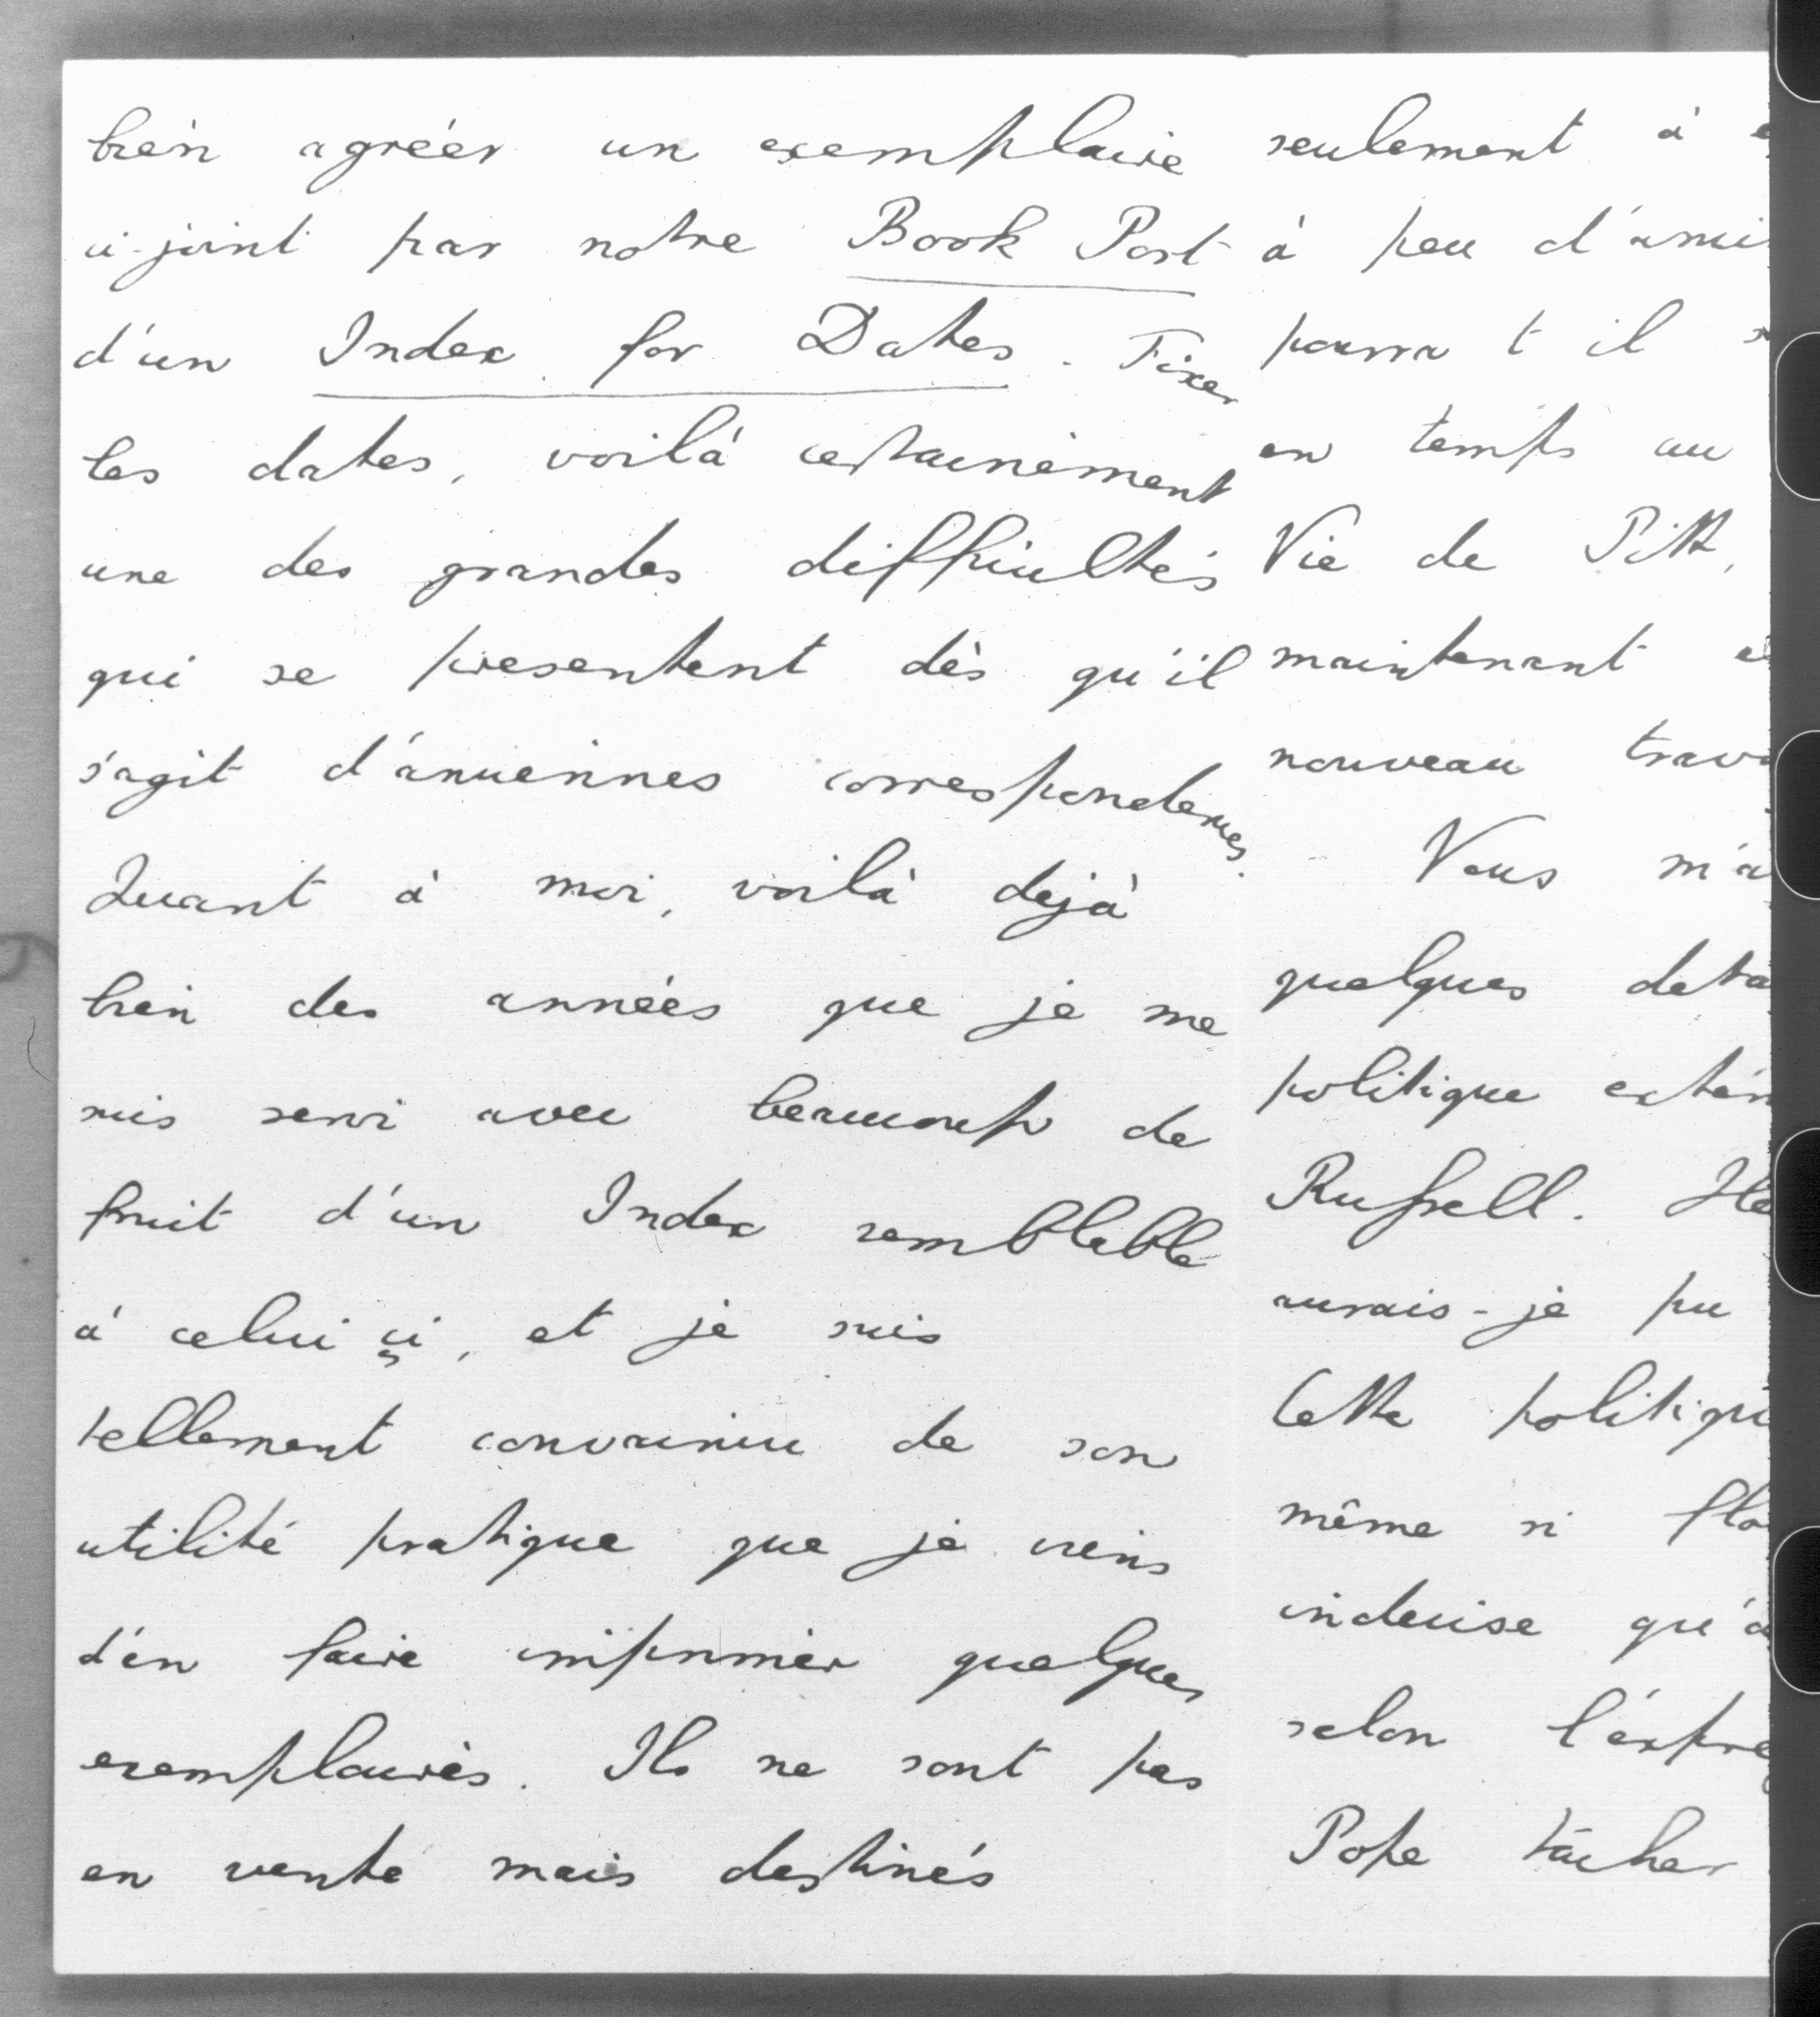 bien agréer un exemplaire
ci-joint par notre Book Post
d'un Index for Dates. Fixer
les dates, voilà certainement
une des grandes difficultés
qui se presentent dès qu'il
s'agit d'anciennes correspondences.
Quant à moi, voilà dejà
bien des années que je me
suis servi avec beaucoup de
fruit d'un Index semblable
à celui çi, et je suis
tellement convaincu de son
utilité pratique que je viens
d'en faire imprimer quelques
exemplaires. Ils ne sont pas
en vente mais destinés
seulement à
à peu d'ami
pourra t il
en temps au
Vie de Pitt,
maintenant
nouveau trava
Vous m'a
quelques deta
politique extér
Russell. He
aurais-je pu
Cette politiqu
même si flo
indecise qu'a
selon l'expre
Pope tâcher